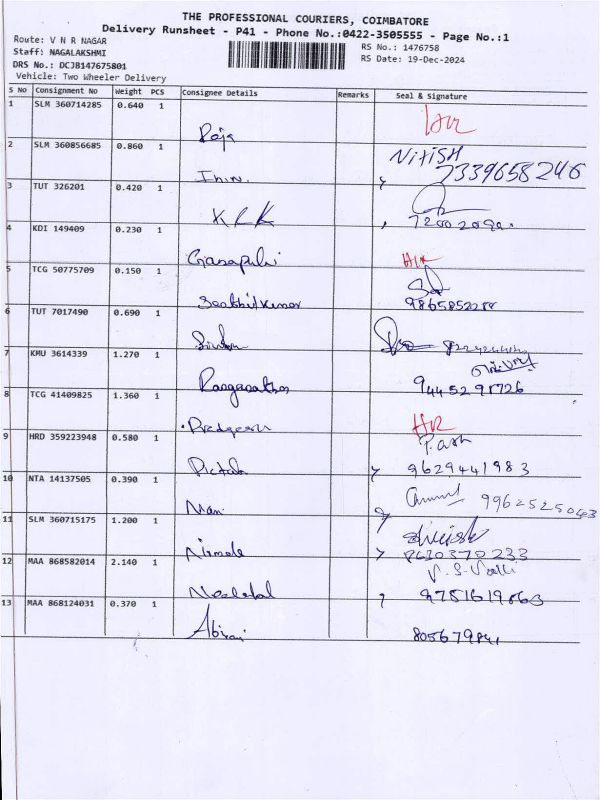 THE PROFESSIONAL COURIERS, COIMBATORE
Delivery Runsheet - P41 - Phone No.:0422-3505555 - Page No.:1
Route: V N R NAGAR
RS No.: 1476758
Staff: NAGALAKSHMI
RS Date: 19-Dec-2024
DRS No.: DCJB147675801
Vehicle: Two Wheeler Delivery
S No Consignment No Weight PCS Consignee Details Remarks Seal & Signature
1 SLM 360714285 0.640 1
Raja
2 SLM 360856685 0.860 1 NITISH
2339658246
3 TUT 326201 0.420 1
KLK
4 KDI 149409 0.230 1
5 TCG 50775709 0.150 1
Senthilkumar 9865852088
6 TUT 7017490 0.690 1
7 KMU 3614339 1.270 1
9445298726
8 TCG 41409825 1.360 1
9 HRD 359223948 0.580 1
9629441983
10 NTA 14137505 0.390 1 9962525043
Mani
11 SLM 360715175 1.200 1
Nirmala 8610370233
12 MAA 868582014 2.140 1 V.S.Valli
9751619863
13 MAA 868124031 0.370 1
Abirami